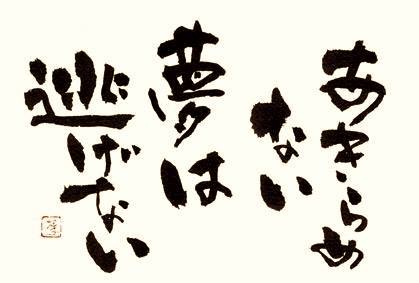 あきらめ
ない
夢は
逃げない